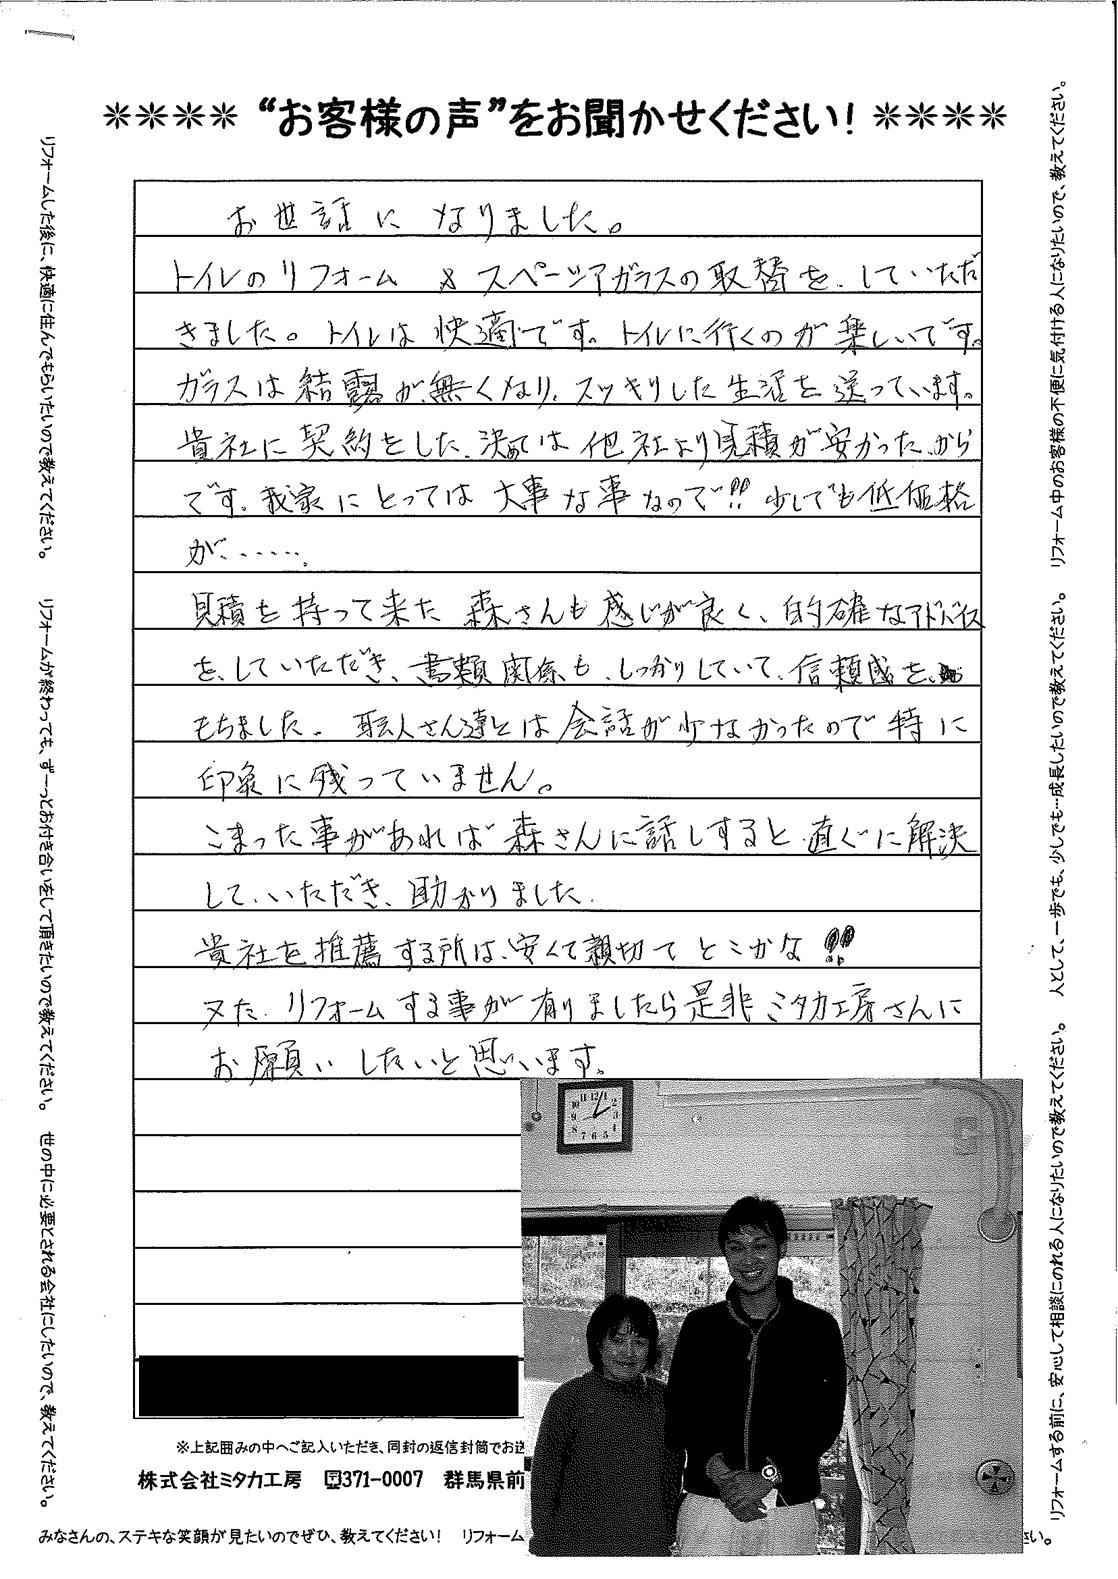 ＊＊＊＊ “お客様の声”をお聞かせください！ ＊＊＊＊
お世話になりました。
トイレのリフォーム & スペーシアガラスの取替を、していただ
きました。トイレは快適です。トイレに行くのが楽しいです。
ガラスは結露が、無くなり、スッキリした生活を送っています。
貴社に契約をした、決めては他社より見積が安かった、から
です。我家にとっては大事な事なので!! 少しでも低価格
が‥‥‥
見積を持って来た森さんも感じが良く、的確なアドバイス
を、していただき、書類関係も、しっかりしていて、信頼感を、
もちました。職人さん達とは会話が少なかったので特に
印象に残っていません。
こまった事があれば森さんに話しすると直ぐに解決
して、いただき、助かりました。
貴社を推薦する所は、安くて親切てとこかな!!
又た、リフォームする事が有りましたら是非ミタカ工房さんに
お願いしたいと思います。
※上記囲みの中へご記入いただき、同封の返信封筒でお送
株式会社ミタカ工房 〒371-0007 群馬県前
みなさんの、ステキな笑顔が見たいのでぜひ、教えてください！ リフォーム
さい。
リフォームした後に、快適に住んでもらいたいので教えてください。
リフォームが終わっても、ず〜っとお付き合いをして頂きたいので教えてください。
世の中に必要とされる会社にしたいので、教えてください。
リフォーム中のお客様の不便に気付ける人になりたいので、教えてください。
人として、一歩でも、少しでも…成長したいので教えてください。
リフォームする前に、安心して相談にのれる人になりたいので教えてください。
12 1 2 3 4 5 6 7 8 9 10 11